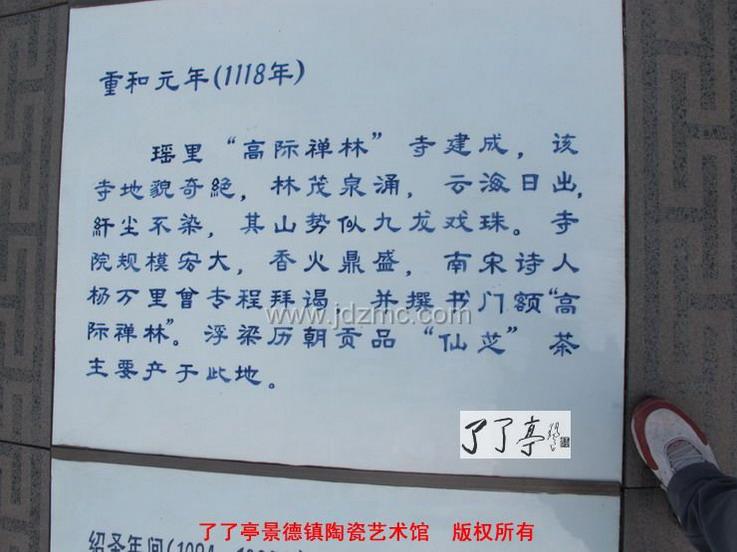 重和元年(1118年)
瑶里“高际禅林”寺建成，该
寺地貌奇絶，林茂泉涌，云海日出，
纤尘不染，其山势似九龙戏珠。寺
院规模宏大，香火鼎盛，南宋诗人
杨万里曾专程拜谒，并撰书门额“高
际禅林”。浮梁历朝贡品“仙芝”茶
主要产于此地。
www.jdzmc.com
了了亭
绍圣年间(1094
了了亭景德镇陶瓷艺术馆 版权所有